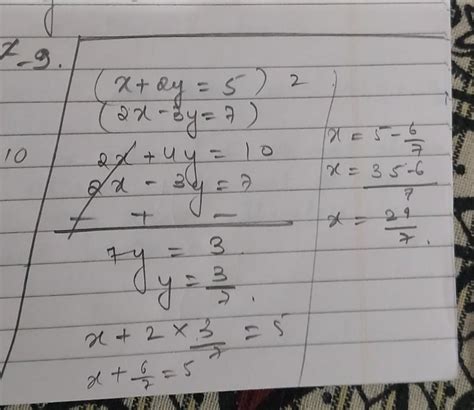 x-9.
(x+2y=5) 2
(2x-3y=7)
10
2x + 4y = 10
2x - 3y = 7
- + -
7y = 3
y = 3/7.
x + 2 × 3/7 = 5
x + 6/7 = 5
x = 5 - 6/7
x = 35-6/7
x = 29/7.